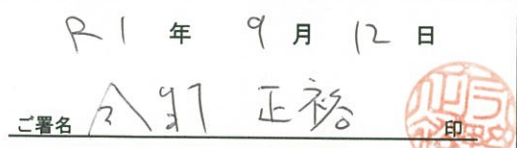 R1年9月12日
ご署名 正裕 印